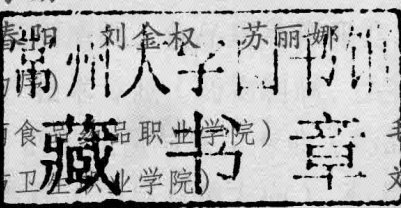 春阳 刘金权 苏丽娜
常州大学图书馆
食品药品职业学院)
藏书章
卫生职业学院)